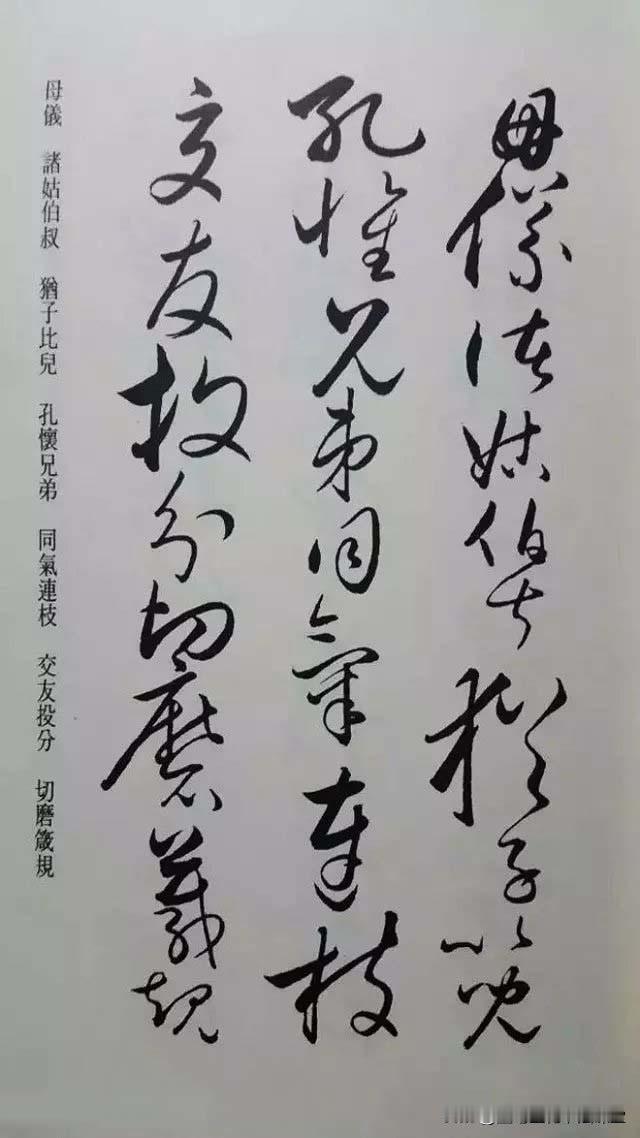 母儀諸姑伯叔猶子比兒
孔懷兄弟同氣連枝
交友投分切磨箴規
母儀 諸姑伯叔 猶子比兒 孔懷兄弟 同氣連枝 交友投分 切磨箴規